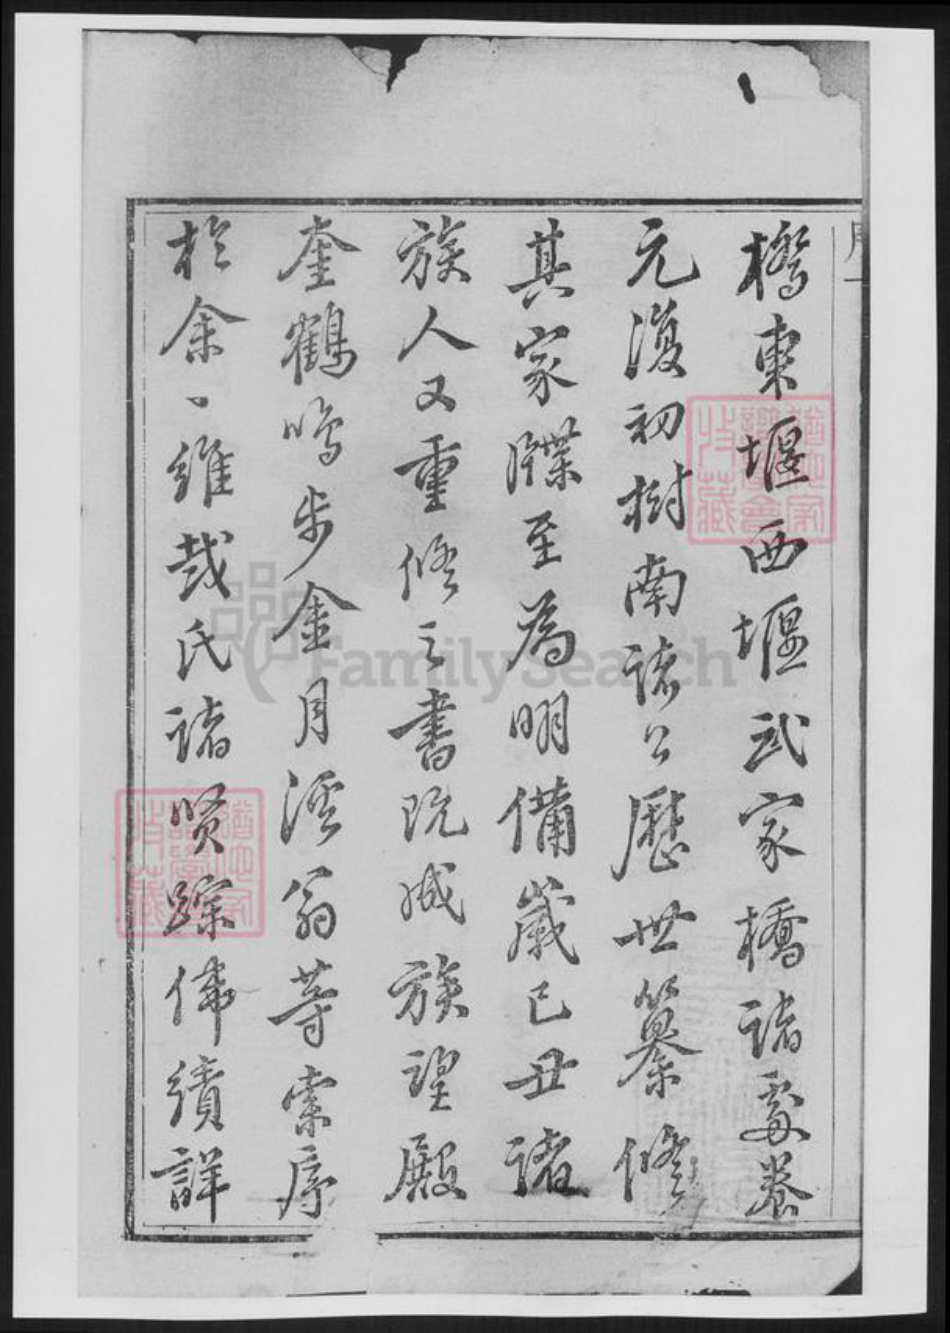 橋東堰西堰武家橋諸處養
元復初樹南諸公歷世纂修
其家牒至為明備歲己丑諸
族人又重修之書既成族望殿
奎鶴鳴步金月溪翁等索序
於余丶維哉氏諸賢蹤偉績詳
FamilySearch